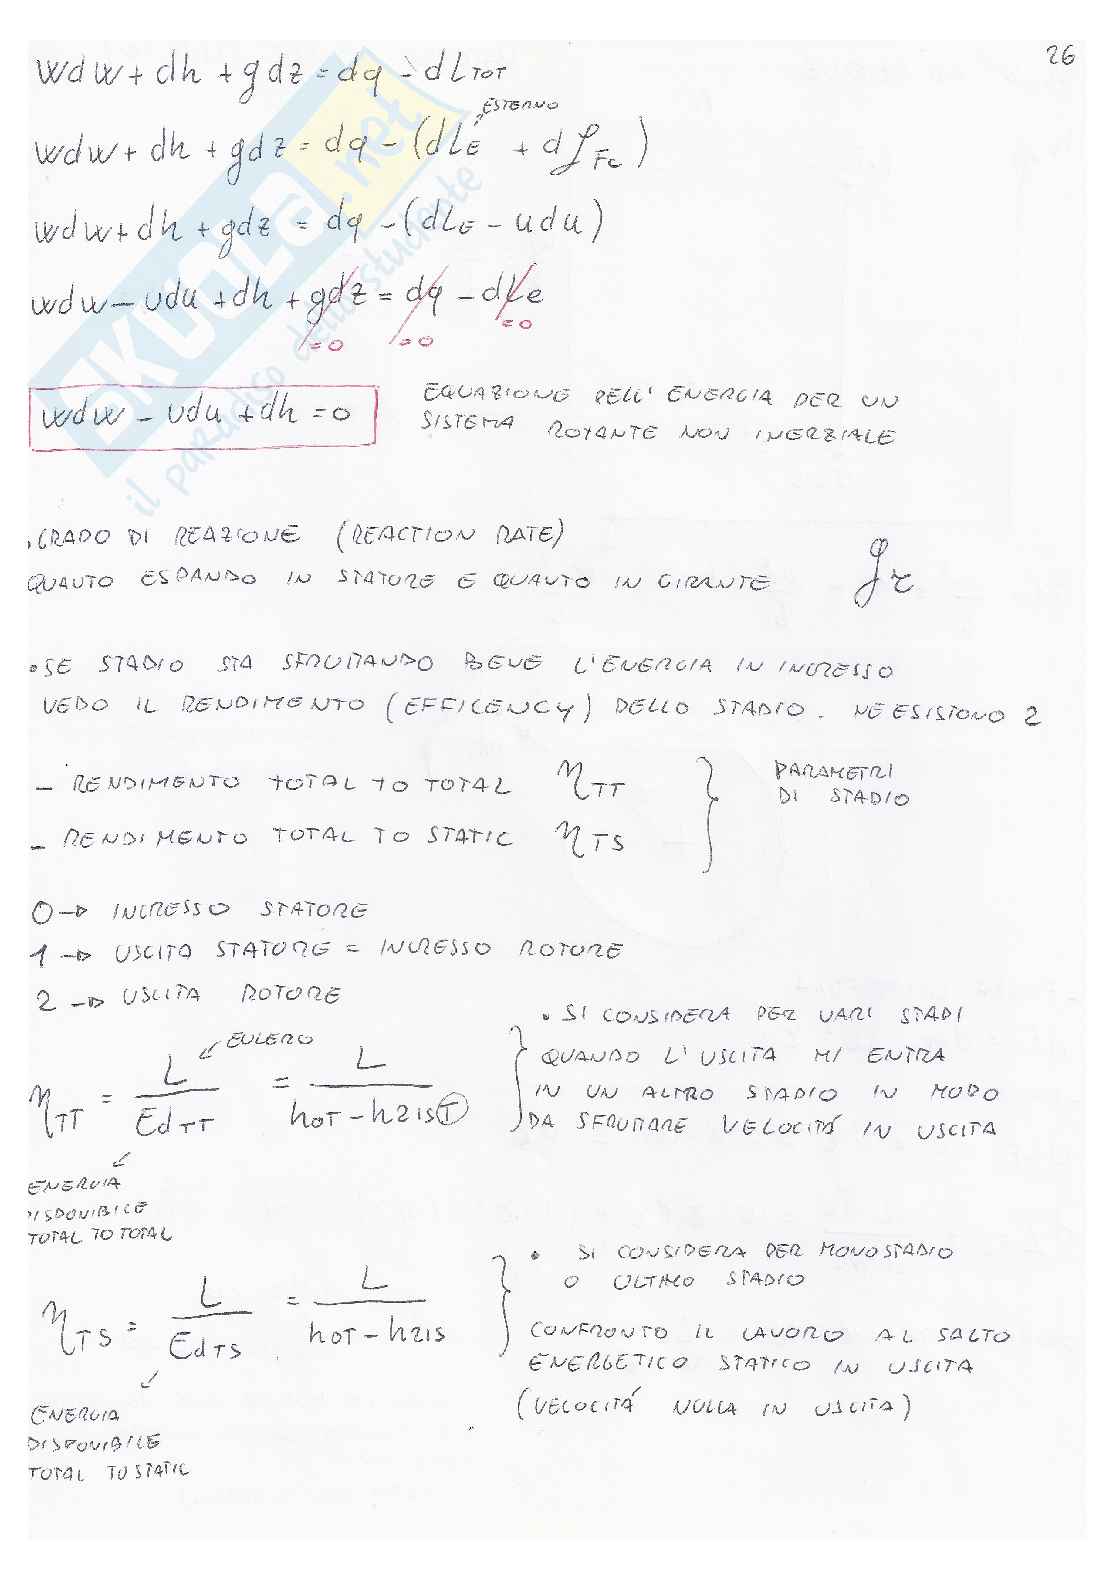 26
wdw + dh + gdz = dq - dL TOT
ESTERNO
wdw + dh + gdz = dq - (dLE + dℒFc)
wdw + dh + gdz = dq - (dLE - udu)
wdw - udu + dh + gdz = dq - dLe
=0 =0 =0
wdw - udu + dh = 0
EQUAZIONE DELL' ENERGIA PER UN
SISTEMA ROTANTE NON INERZIALE
. GRADO DI REAZIONE (REACTION RATE)
QUANTO ESPANDO IN STATORE E QUANTO IN GIRANTE
• SE STADIO STA SFRUTTANDO BENE L'ENERGIA IN INGRESSO
VEDO IL RENDIMENTO (EFFICENCY) DELLO STADIO. NE ESISTONO 2
- RENDIMENTO TOTAL TO TOTAL ηTT
- RENDIMENTO TOTAL TO STATIC ηTS
PARAMETRI
DI STADIO
0 → INGRESSO STATORE
1 → USCITA STATORE = INGRESSO ROTORE
2 → USCITA ROTORE
EULERO
ηTT = L / EdTT = L / h0T - h2isT
• SI CONSIDERA PER VARI STADI
QUANDO L'USCITA MI ENTRA
IN UN ALTRO STADIO IN MODO
DA SFRUTTARE VELOCITÁ IN USCITA
ENERGIA
DISPONIBILE
TOTAL TO TOTAL
ηTS = L / EdTS = L / h0T - h2is
• SI CONSIDERA PER MONOSTADIO
O ULTIMO STADIO
CONFRONTO IL LAVORO AL SALTO
ENERGETICO STATICO IN USCITA
(VELOCITÁ NULLA IN USCITA)
ENERGIA
DISPONIBILE
TOTAL TO STATIC
SKUOLA.net
il paradiso dello studente